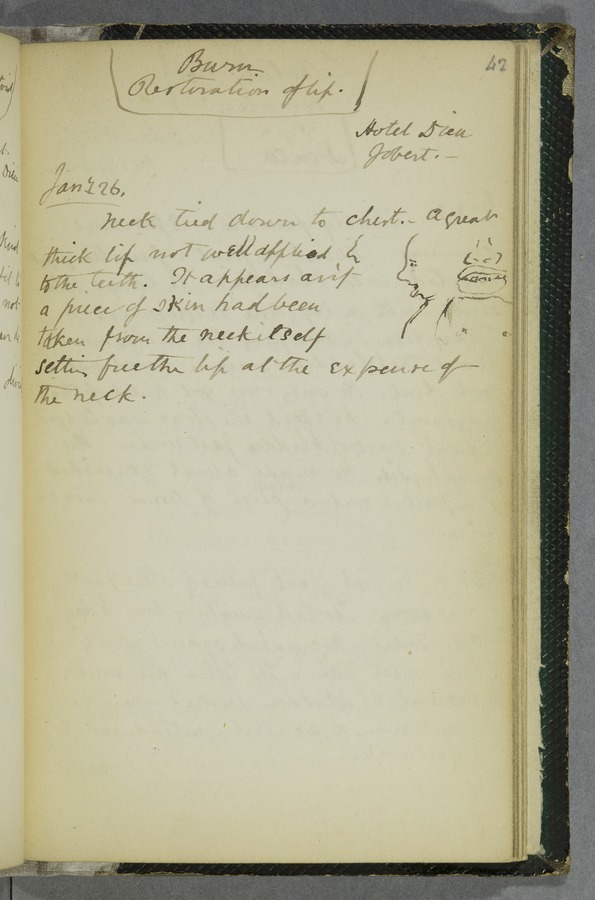 42
Burn
Restoration of lip.
Hotel Dieu
Jobert. -
Jany 26.
Neck tied down to chest. - A great
thick lip not well applied
to the teeth. It appears as if
a piece of skin had been
taken from the neck itself
setting free the lip at the expense of
the neck.